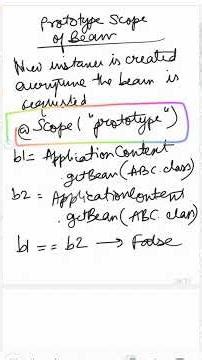 Prototype Scope
of Bean
New instance is created
everytime the bean is
requested
@ Scope ("prototype")
b1 = ApplicationContent
.getBean(ABC.class)
b2 = ApplicationContent
.getBean(ABC.class)
b1 == b2 → False